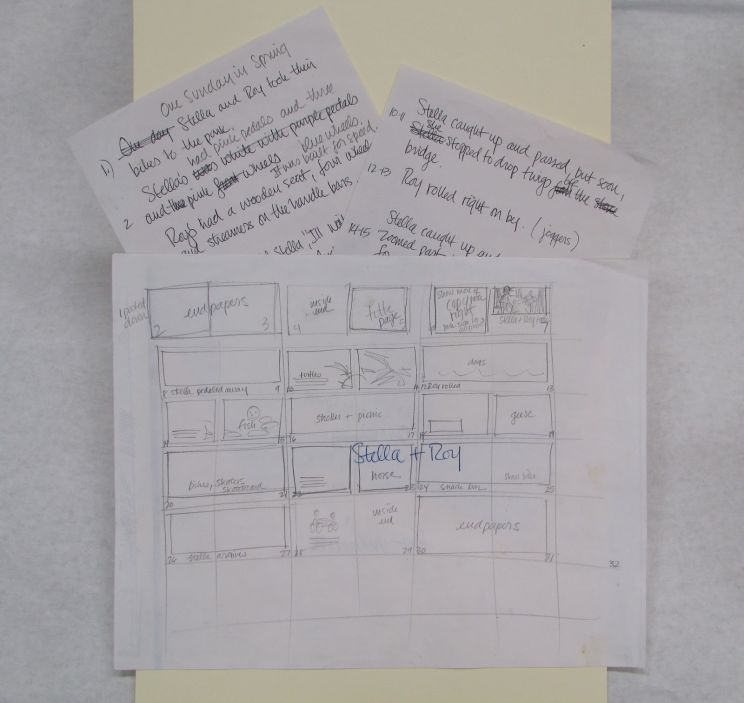 One sunday in Spring
1.) One day Stella and Roy took their
bikes to the park.
had pink pedals and three
Stella's white with purple pedals
and the pink wheels blue wheels.
It was built for speed.
2 Roy's had a wooden seat, four wheels
and streamers on the handle bars.
Stella, "I'll
10-11 Stella caught up and passed, but soon,
she
Stella stopped to drop twigs off the
bridge.
12-13 Roy rolled right on by. (joggers)
14-15 Stella caught up and
Zoomed past
endpapers
2 3
inside
end
4
title
page
5
copy
right
Stella + Roy
8 Stella pedaled away 9
turtles
10
11
dogs
12 Roy rolled 13
fish
15
stroller + picnic
16 17
geese
19
Stella + Roy
bikes, strollers
skateboard
20 21
horse
22 23
24 snack bar 25
26 Stella arrives 27
28
inside
end
29
endpapers
30 31
32